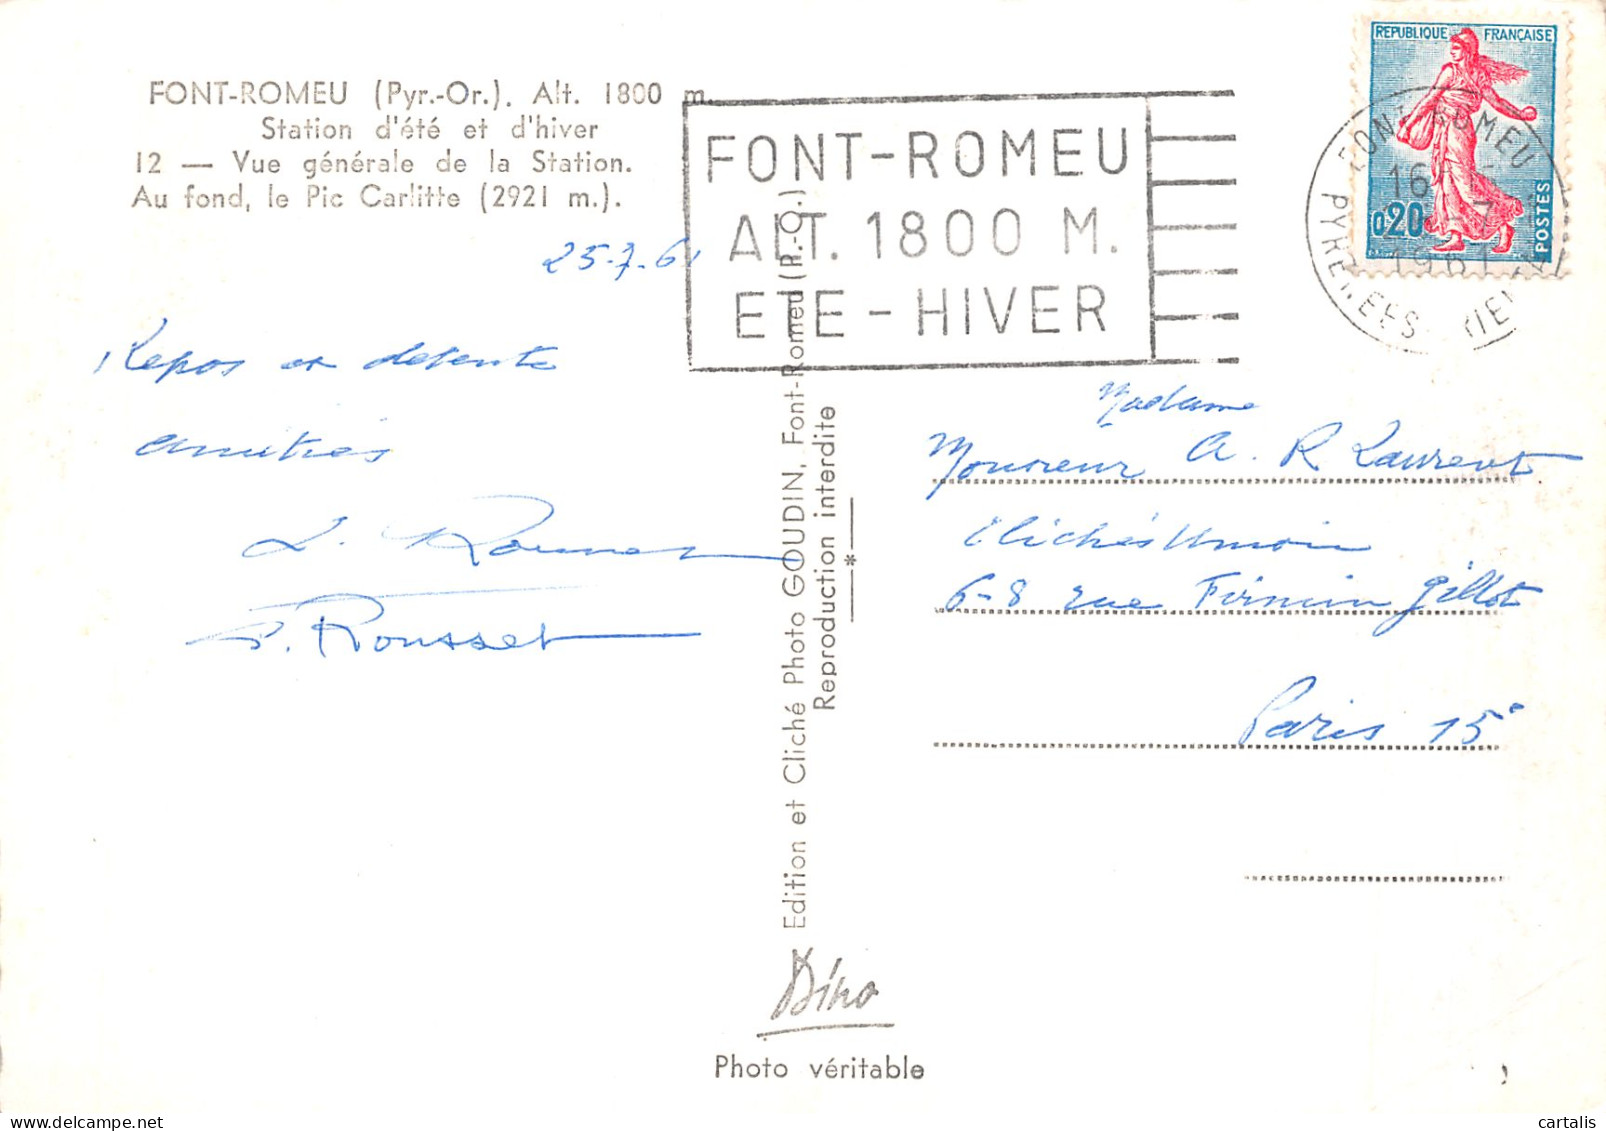 FONT-ROMEU (Pyr.-Or.). Alt. 1800 m.
Station d'été et d'hiver
12 — Vue générale de la Station.
Au fond, le Pic Carlitte (2921 m.).
25-7-61
Repos et detente
amitiés
L. 
P. Rousset
Edition et Cliché Photo GOUDIN, Font-Romeu (P.-O.)
Reproduction interdite
Dino
Photo véritable
FONT-ROMEU
ALT. 1800 M.
ETE - HIVER
REPUBLIQUE FRANÇAISE
0,20
POSTES
FONT ROMEU
16
-7
1961
PYRENEES
Madame
Monsieur A. R Laurent
Clichés Union
6-8 rue Firmin Gillot
Paris 15e
cartalis